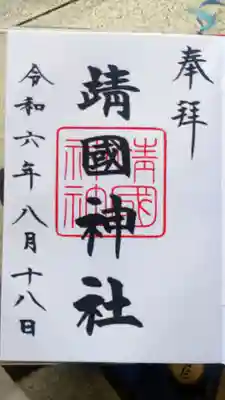 奉拝
靖國神社
靖國神社
令和六年八月十八日